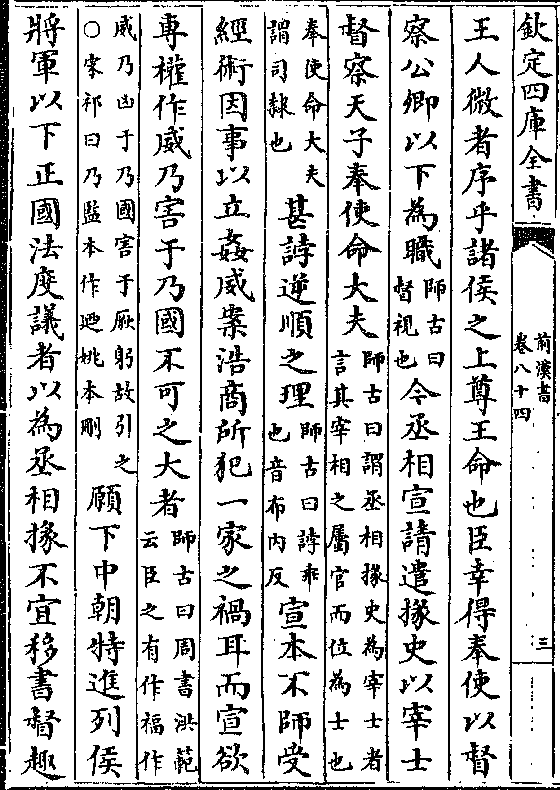 欽定四庫全書
前漢書
卷八十四
三
王人微者序乎諸侯之上尊王命也臣幸得奉使以督
察公卿以下為職師古曰督視也今丞相宣請遣掾史以宰士
督察天子奉使命大夫師古曰謂丞相掾史為宰士者言其宰相之屬官而位為士也
奉使命大夫謂司隸也甚誖逆順之理師古曰誖乖也音布内反宣本不師受
經術因事以立姦威案浩商所犯一家之禍耳而宣欲
專權作威乃害于乃國不可之大者師古曰周書洪範云臣之有作福作
威乃凶于乃國害于厥躬故引之○宋祁曰乃監本作迺姚本刪願下中朝特進列侯
將軍以下正國法度議者以為丞相掾不宜移書督趣